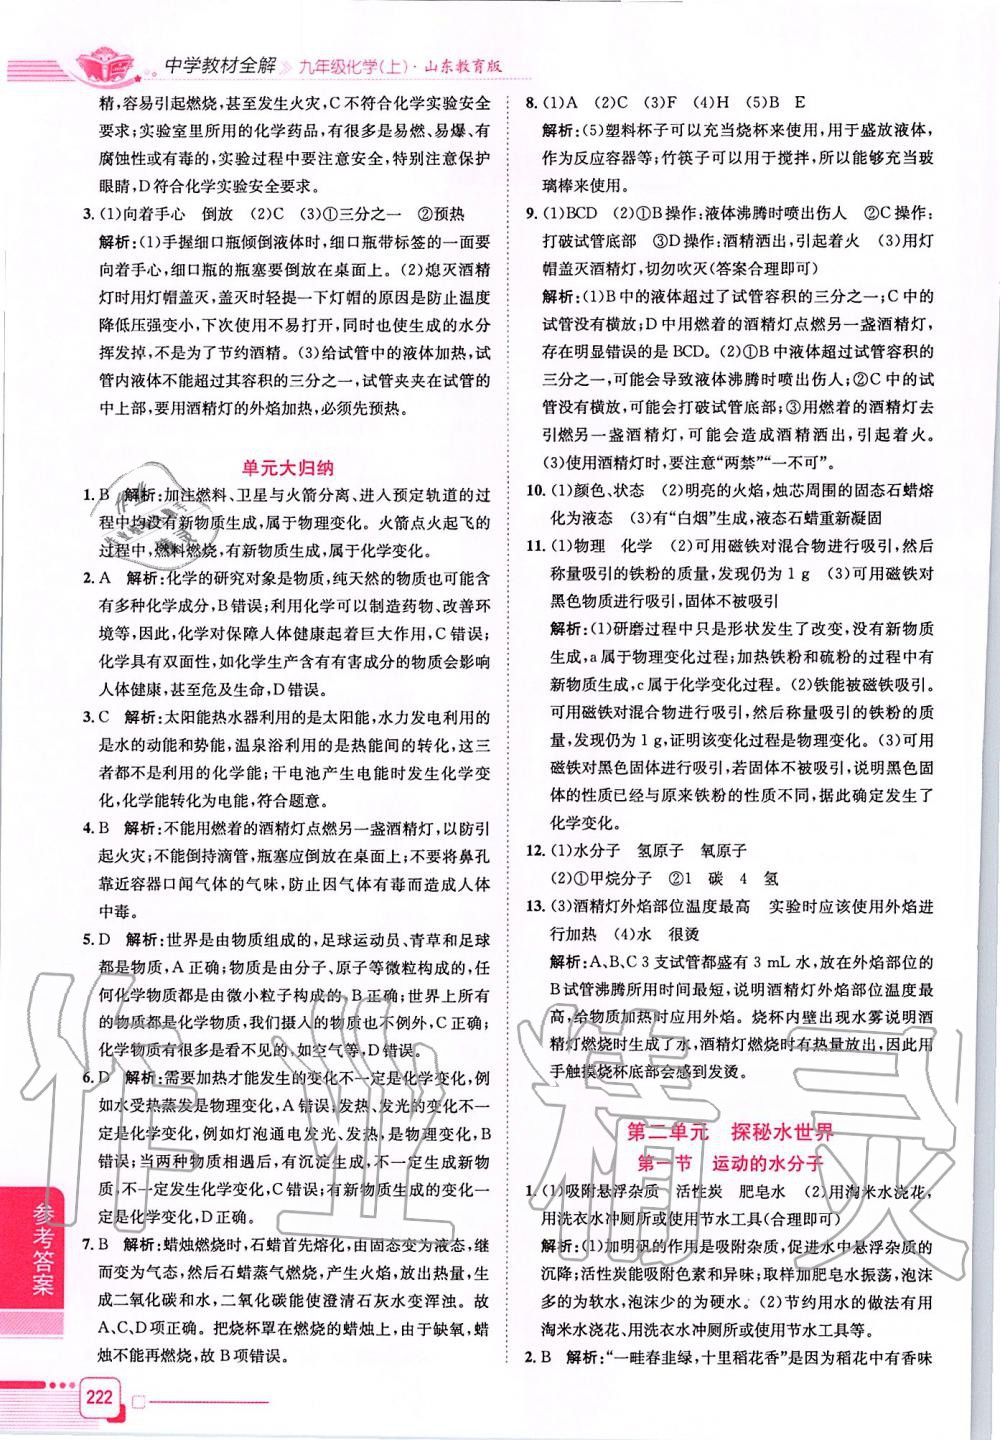 中学教材全解 九年级化学(上)·山东教育版
精,容易引起燃烧,甚至会发生火灾,C不符合化学实验安全
要求;实验室里所用的化学药品,有很多是易燃、易爆、有
腐蚀性或有毒的,实验过程中要注意安全,特别注意保护
眼睛,D符合化学实验安全要求。
3. (1)向着手心 倒放 (2)C (3)①三分之一 ②预热
解析:(1)手握细口瓶倾倒液体时,细口瓶带标签的一面要
向着手心,细口瓶的瓶塞要倒放在桌面上。(2)熄灭酒精
灯时用灯帽盖灭,盖灭时轻提一下灯帽的原因是防止温度
降低压强变小,下次使用不易打开,同时也使生成的水分
挥发掉,不是为了节约酒精。(3)给试管中的液体加热,试
管内液体不能超过其容积的三分之一,试管夹夹在试管的
中上部,要用酒精灯的外焰加热,必须先预热。
单元大归纳
1. B 解析:加注燃料、卫星与火箭分离、进入预定轨道的过
程中均没有新物质生成,属于物理变化。火箭点火起飞的
过程中,燃料燃烧,有新物质生成,属于化学变化。
2. A 解析:化学的研究对象是物质,纯天然的物质中可能含
有多种化学成分,B错误;利用化学可以制造药物、改善环
境等,因此,化学对保障人体健康起着巨大作用,C错误;
化学具有双面性,如化学生产含有有害成分的物质会影响
人体健康,甚至危及生命,D错误。
3. C 解析:太阳能热水器利用的是太阳能,水力发电利用的
是水的动能和势能,温泉浴利用的是热能间的转化,这三
者都不是利用的化学能;干电池产生电能时发生化学变
化,化学能转化为电能,符合题意。
4. B 解析:不能用燃着的酒精灯点燃另一盏酒精灯,以防引
起火灾;不能倒持滴管,瓶塞应倒放在桌面上;不要将鼻孔
靠近容器口闻气体的气味,防止因气体有毒而造成人体
中毒。
5. D 解析:世界是由物质组成的,足球运动员、青草和足球
都是物质,A正确;物质是由分子、原子等微粒构成的,任
何化学物质都是由微小粒子构成的,B正确;世界上所有
的物质都是化学物质,我们摄入的物质也不例外,C正确;
化学物质有很多是看不见的,如空气等,D错误。
6. D 解析:需要加热才能发生的变化不一定是化学变化,例
如水受热蒸发是物理变化,A错误;发热、发光的变化不一
定是化学变化,例如灯泡通电发光、发热,是物理变化,B
错误;当两种物质相混合时,有沉淀生成,不一定生成新物
质,不一定发生化学变化,C错误;化学变化一定生成新物
质,生成新物质的变化一定是化学变化,D正确。
7. B 解析:蜡烛燃烧时,石蜡首先熔化,由固态变为液态,继
而变为气态,然后石蜡蒸气燃烧,产生火焰,放出热量,生
成二氧化碳和水,二氧化碳能使澄清石灰水变浑浊。故
A、C、D项正确。把烧杯罩在燃烧的蜡烛上,由于缺氧,蜡
烛不能再燃烧,故B项错误。
8. (1)A (2)C (3)F (4)H (5)B E
解析:(5)塑料杯子可以充当烧杯来使用,用于盛放液体,
作为反应容器等;竹筷子可以用于搅拌,所以能够充当玻
璃棒来使用。
9. (1)BCD (2)①B操作:液体沸腾时喷出伤人 ②C操作:
打破试管底部 ③D操作:酒精洒出,引起着火 (3)用灯
帽盖灭酒精灯,切勿吹灭(答案合理即可)
解析:(1)B中的液体超过了试管容积的三分之一;C中的
试管没有横放;D中用燃着的酒精灯点燃另一盏酒精灯,
存在明显错误的是BCD。(2)①B中液体超过试管容积的
三分之一,可能会导致液体沸腾时喷出伤人;②C中的试
管没有横放,可能会打破试管底部;③用燃着的酒精灯去
引燃另一盏酒精灯,可能会造成酒精洒出,引起着火。
(3)使用酒精灯时,要注意“两禁”“一不可”。
10. (1)颜色、状态 (2)明亮的火焰,烛芯周围的固态石蜡熔
化为液态 (3)有“白烟”生成,液态石蜡重新凝固
11. (1)物理 化学 (2)可用磁铁对混合物进行吸引,然后
称量吸引的铁粉的质量,发现仍为1g (3)可用磁铁对
黑色物质进行吸引,固体不被吸引
解析:(1)研磨过程中只是形状发生了改变,没有新物质
生成,a属于物理变化过程;加热铁粉和硫粉的过程中有
新物质生成,c属于化学变化过程。(2)铁能被磁铁吸引。
可用磁铁对混合物进行吸引,然后称量吸引的铁粉的质
量,发现仍为1g,证明该变化过程是物理变化。(3)可用
磁铁对黑色固体进行吸引,若固体不被吸引,说明黑色固
体的性质已经与原来铁粉的性质不同,据此确定发生了
化学变化。
12. (1)水分子 氢原子 氧原子
(2)①甲烷分子 ②1 碳 4 氢
13. (3)酒精灯外焰部位温度最高 实验时应该使用外焰进
行加热 (4)水 很烫
解析:A、B、C 3支试管都盛有3 mL水,放在外焰部位的
B试管沸腾所用时间最短,说明酒精灯外焰部位温度最
高,给物质加热时应用外焰。烧杯内壁出现水雾说明酒
精灯燃烧时生成了水,酒精灯燃烧时有热量放出,因此用
手触摸烧杯底部会感到发烫。
第二单元 探秘水世界
第一节 运动的水分子
1. (1)吸附悬浮杂质 活性炭 肥皂水 (2)用淘米水浇花,
用洗衣水冲厕所或使用节水工具(合理即可)
解析:(1)加明矾的作用是吸附杂质,促进水中悬浮杂质的
沉降;活性炭能吸附色素和异味;取样加肥皂水振荡,泡沫
多的为软水,泡沫少的为硬水。(2)节约用水的做法有用
淘米水浇花、用洗衣水冲厕所或使用节水工具等。
2. B 解析:“一畦春韭绿,十里稻花香”是因为稻花中有香味
参考答案
222
作业精灵